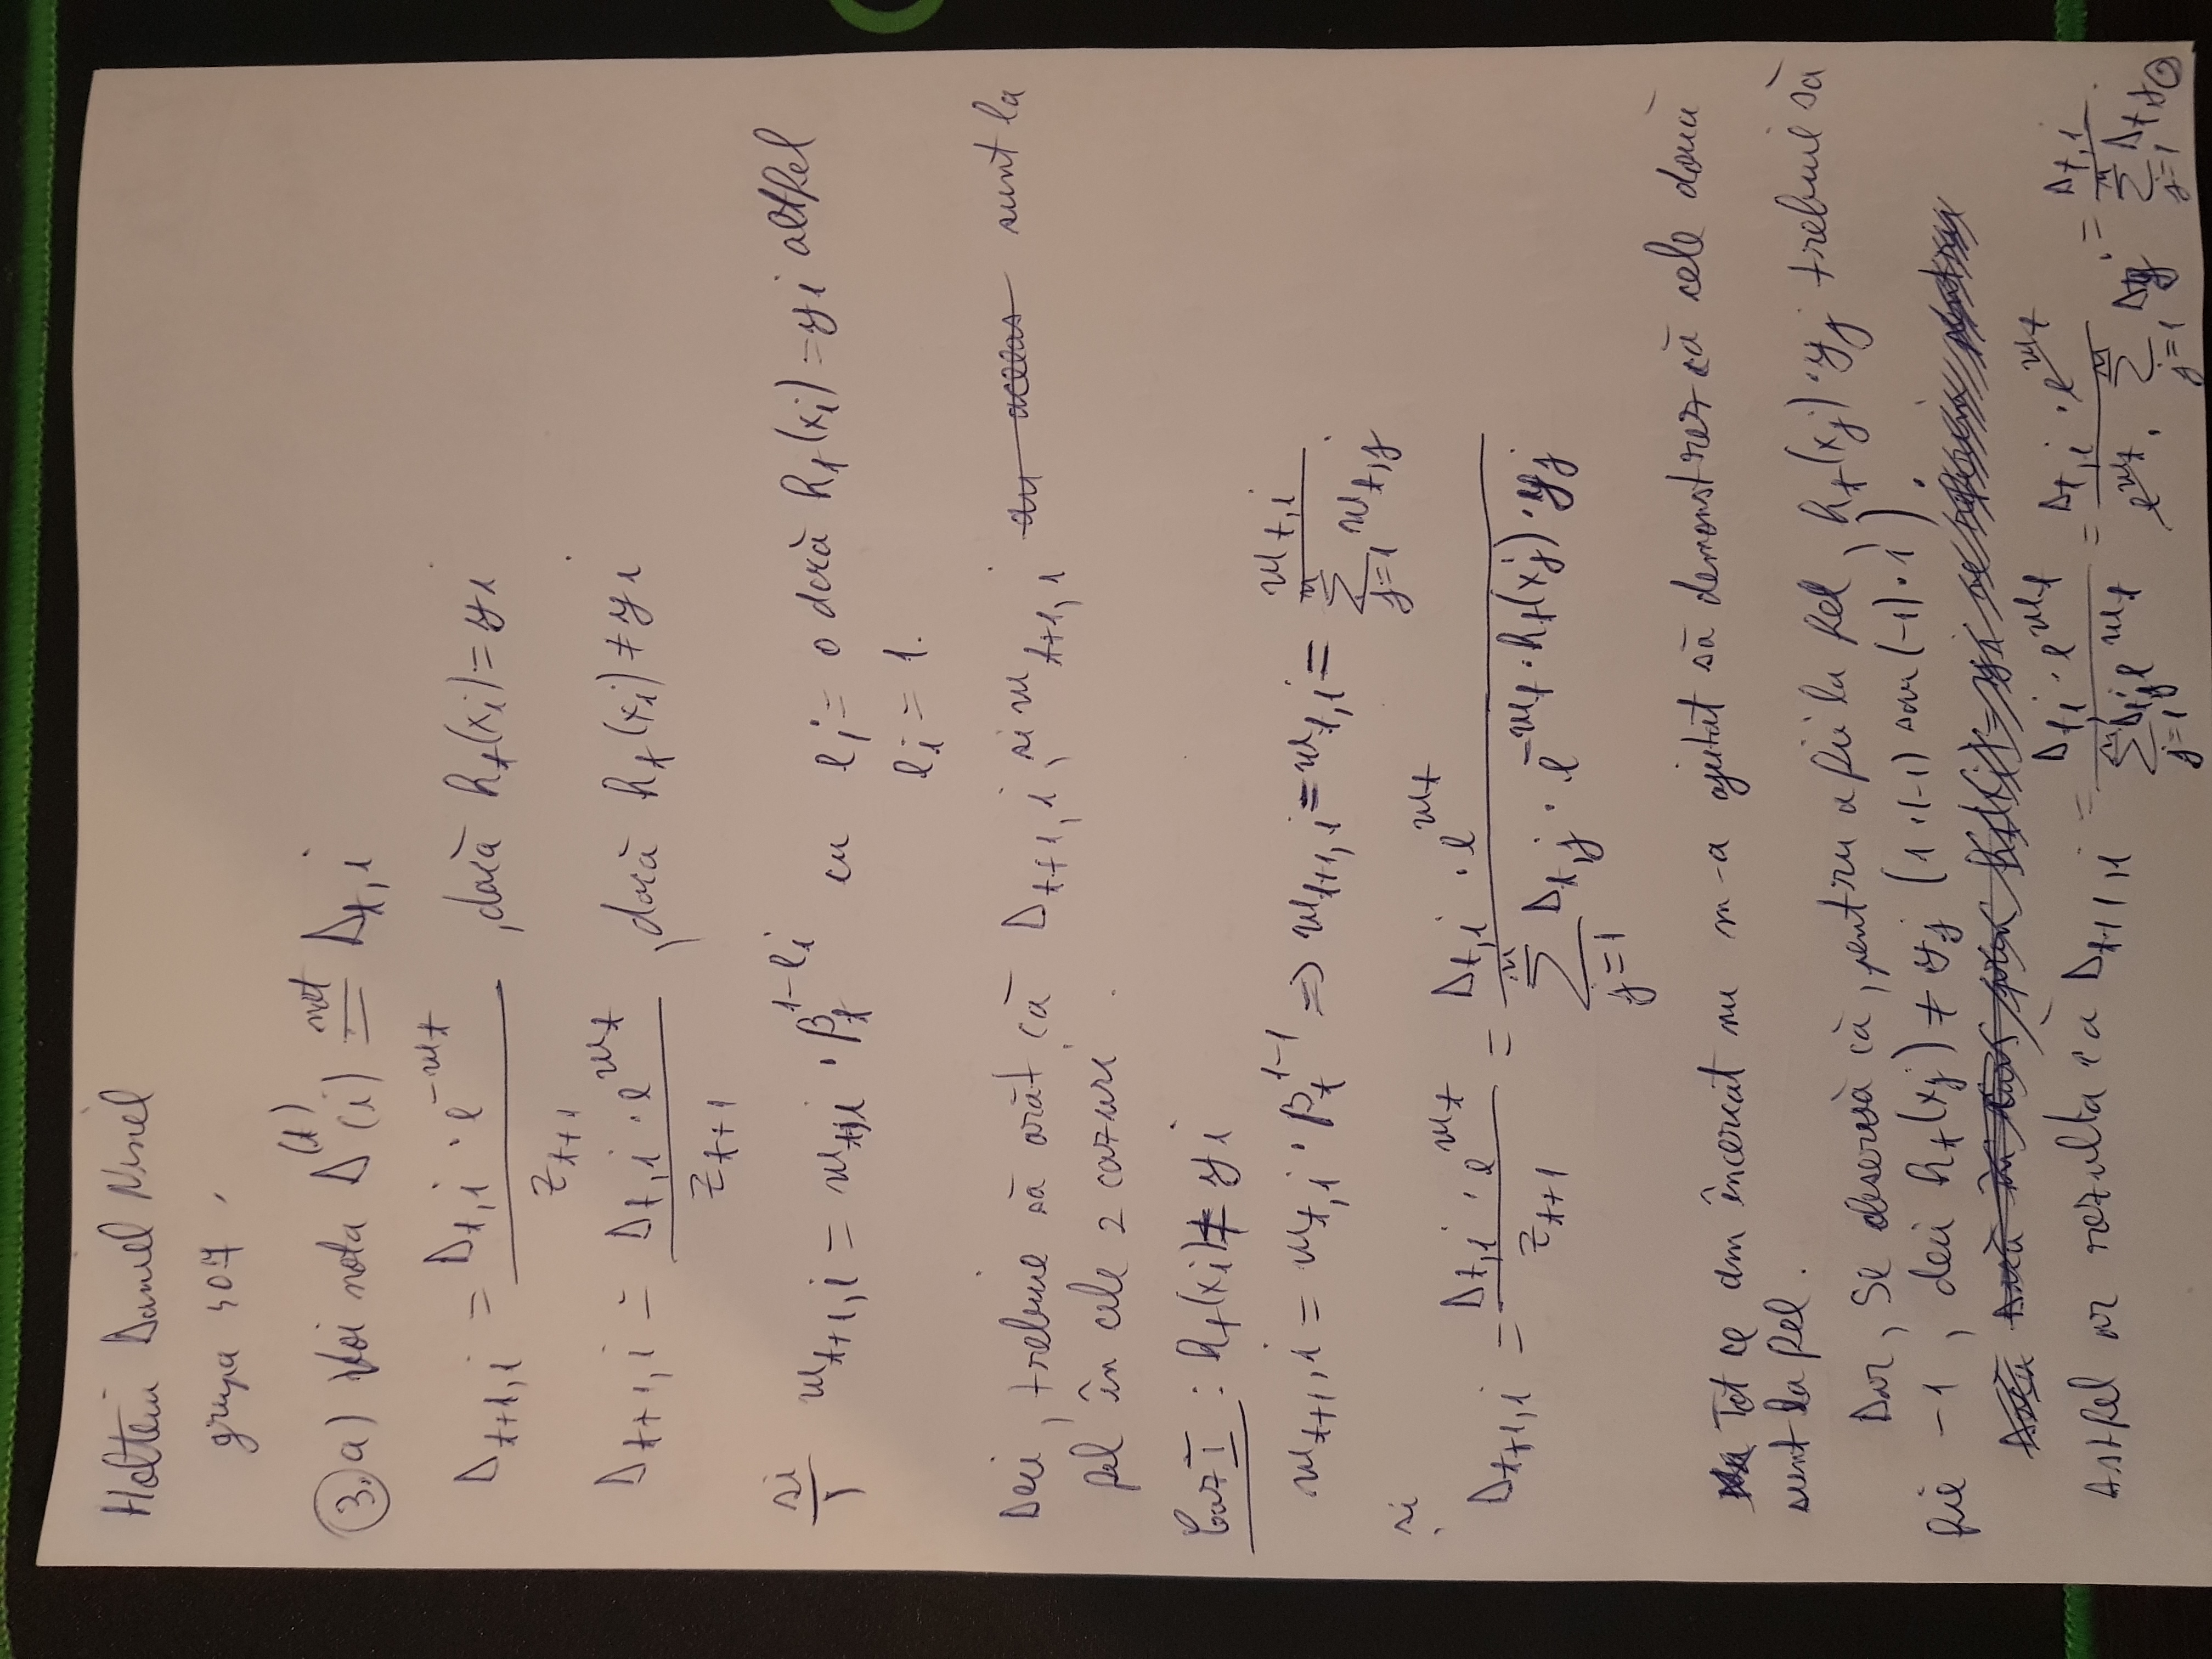 Holtein Daniel Ninel
grupa 407
3. a) Voi nota D^(t)(i) =^not D_t,i
D_t+1,i = (D_t,i · e^-w_t) / Z_t+1 , dacă h_t(x_i) = y_i
D_t+1,i = (D_t,i · e^w_t) / Z_t+1 , dacă h_t(x_i) ≠ y_i
și w_t+1,i = w_t,i · β_t^1-e_i cu e_i = 0 dacă h_t(x_i) = y_i altfel
e_i = 1.
Deci, trebuie să arăt că D_t+1,i și w_t+1,i sunt la
fel în cele 2 cazuri.
Caz I : h_t(x_i) ≠ y_i
w_t+1,i = w_t,i · β_t^1-1 => w_t+1,i = w_t,i = w_t,i / Σ_j=1^n w_t,j
și
D_t+1,i = (D_t,i · e^w_t) / Z_t+1 = (D_t,i · e^w_t) / (Σ_j=1^n D_t,j · e^-w_t · h_t(x_j) · y_j)
Tot ce am încercat nu m-a ajutat să demonstrez că cele două
sunt la fel.
Dar, Se observă că, pentru a fi la fel, h_t(x_j) · y_j trebuie să
fie -1, deci h_t(x_j) ≠ y_j (1 · (-1) sau (-1) · 1).
Astfel ar rezulta că D_t+1,i = (D_t,i · e^w_t) / (Σ_j=1^n D_t,j e^w_t) = (D_t,i · e^w_t) / (e^w_t · Σ_j=1^n D_t,j) = D_t,i / Σ_j=1^n D_t,j